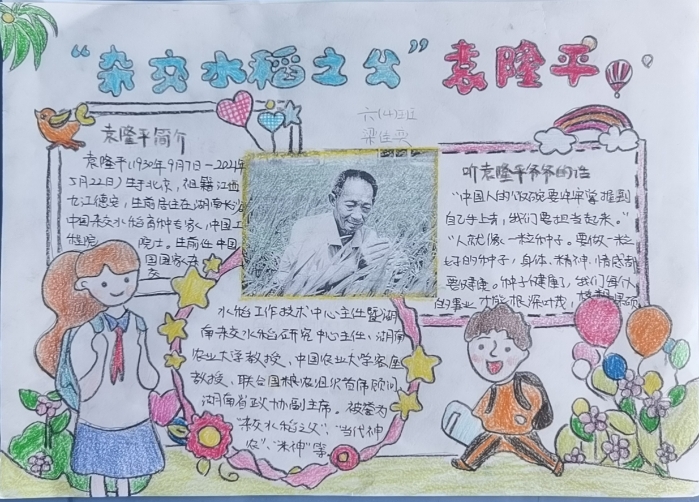 “杂交水稻之父”袁隆平
六(4)班
梁佳雯
袁隆平简介
袁隆平(1930年9月7日-2021年
5月22日)生于北京,祖籍江西
九江德安,生前居住在湖南长沙
中国杂交水稻育种专家,中国工
程院 院士。生前任中国
国国家杂
交
水稻工作技术中心主任暨湖
南杂交水稻研究中心主任、湖南
农业大学教授、中国农业大学客座
教授、联合国粮农组织首席顾问、
湖南省政协副主席。被誉为
“杂交水稻之父”、“当代神
农”、“米神”等。
听袁隆平爷爷的话
“中国人的饭碗要牢牢掌握到
自己手上来,我们要担当起来。”
“人就像一粒种子。要做一粒
好的种子,身体、精神、情感都
要健康。种子健康了,我们每个人
的事业才能根深叶茂,枝粗果硕